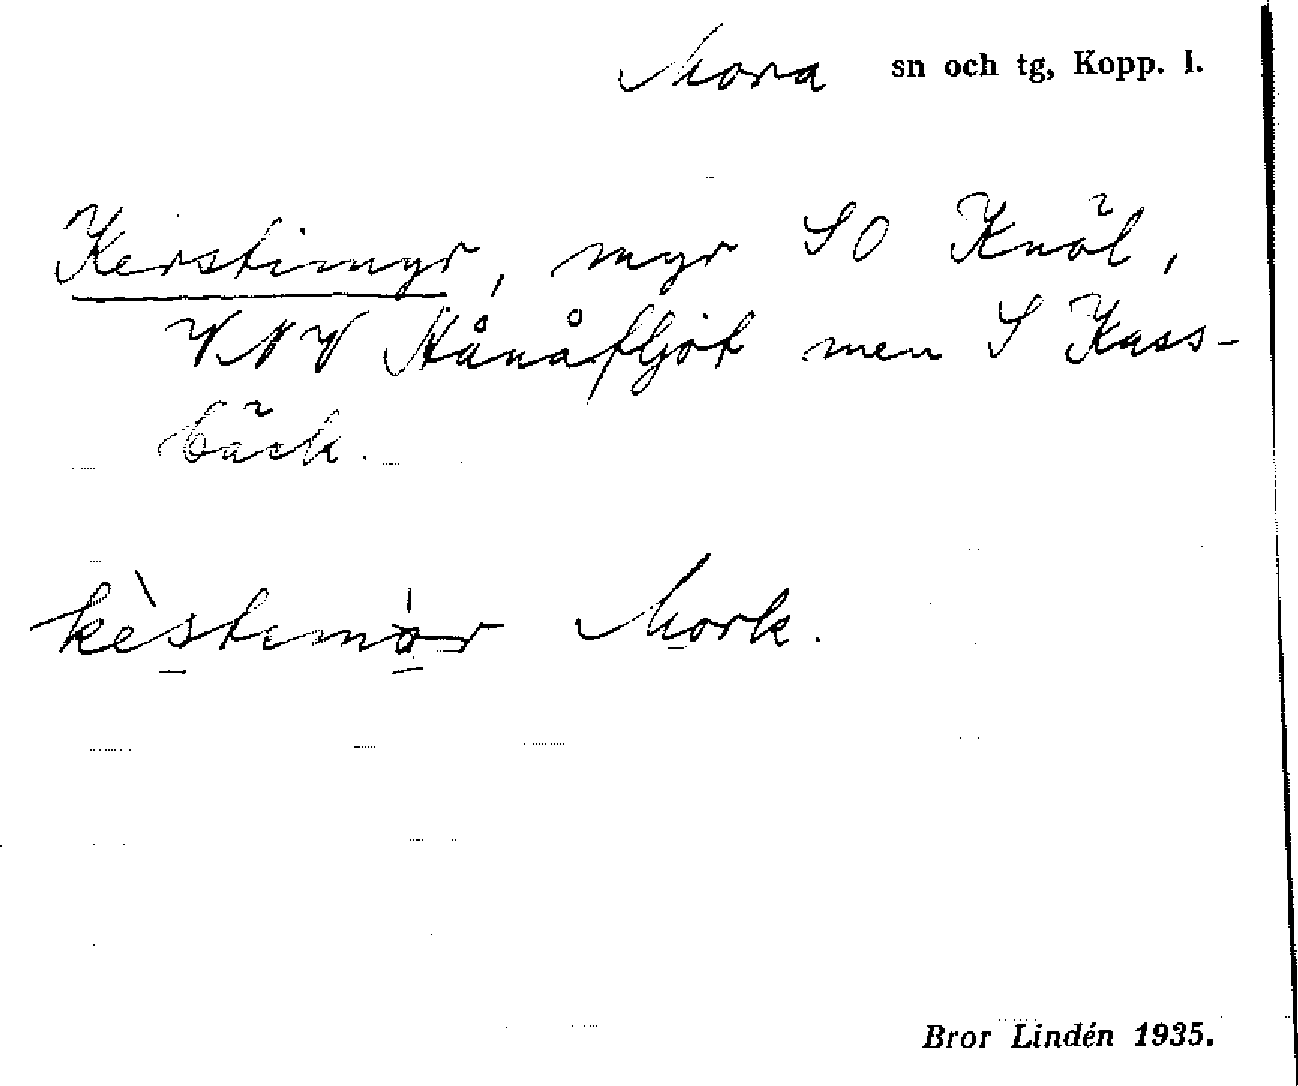 Mora sn och tg, Kopp. l.
Kerstimyr, myr SO Knöl,
VNV Hånåfljöt men S Kass-
bäck.
kèstimòr Mork.
Bror Lindén 1935.